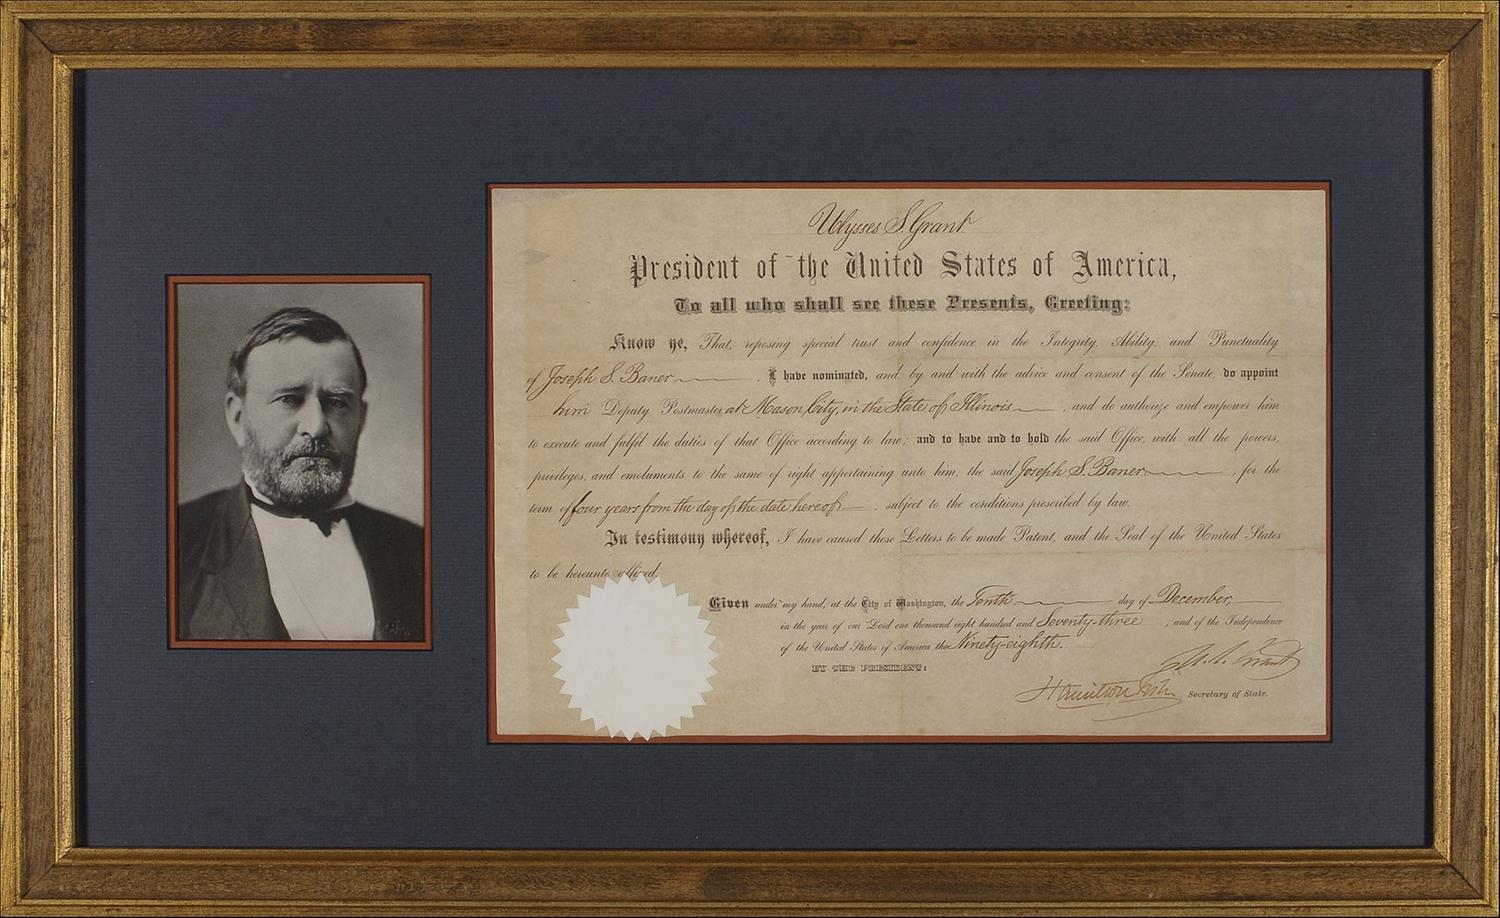 Ulysses S. Grant
President of the United States of America,
To all who shall see these Presents, Greeting:
Know ye, That, reposing special trust and confidence in the Integrity, Ability, and Punctuality
of Joseph S. Baner, I have nominated, and, by and with the advice and consent of the Senate, do appoint
him Deputy Postmaster at Mason City, in the State of Illinois, and do authorize and empower him
to execute and fulfil the duties of that Office according to law; and to have and to hold the said Office, with all the powers,
privileges, and emoluments to the same of right appertaining unto him, the said Joseph S. Baner, for the
term of four years from the day of the date hereof, subject to the conditions prescribed by law.
In testimony whereof, I have caused these Letters to be made Patent, and the Seal of the United States
to be hereunto affixed.
Given under my hand, at the City of Washington, the Tenth day of December,
in the year of our Lord one thousand eight hundred and Seventy-three, and of the Independence
of the United States of America the Ninety-eighth.
BY THE PRESIDENT:
U. S. Grant
Hamilton Fish Secretary of State.